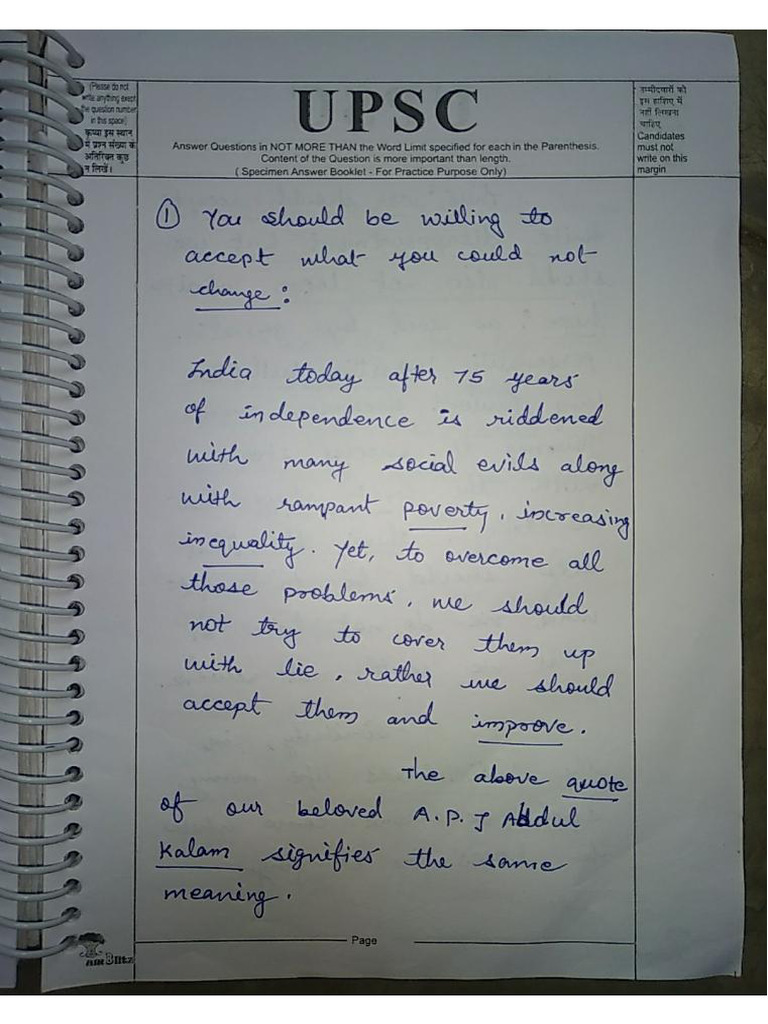 (Please do not
write anything exept
the question number
in this space)
कृपया इस स्थान
में प्रश्न संख्या के
अतिरिक्त कुछ
न लिखें।
UPSC
Answer Questions in NOT MORE THAN the Word Limit specified for each in the Parenthesis.
Content of the Question is more important than length.
( Specimen Answer Booklet - For Practice Purpose Only)
उम्मीदवारों को
इस हाशिए में
नहीं लिखना
चाहिए
Candidates
must not
write on this
margin
① You should be willing to
accept what you could not
change :
India today after 75 years
of independence is riddened
with many social evils along
with rampant poverty, increasing
inequality. Yet, to overcome all
those problems, we should
not try to cover them up
with lie, rather we should
accept them and improve.
The above quote
of our beloved A.P.J Abdul
Kalam signifies the same
meaning.
Page